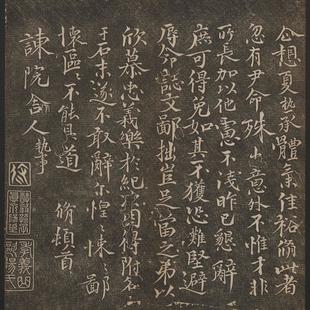 啟想夏熱承體氣佳裕脩此者
忽有尹命殊出意外不惟才非
所長加以他慮不淺昨已懇辭
庶可得免如其不獲恐難堅避
辱命誌文鄙拙豈足當之弟以
欣慕忠義樂於紀述因得附名
于石末遂不敢辭爾惶悚惶悚鄙
懷區區不能具道 脩頓首
諫院舍人執事